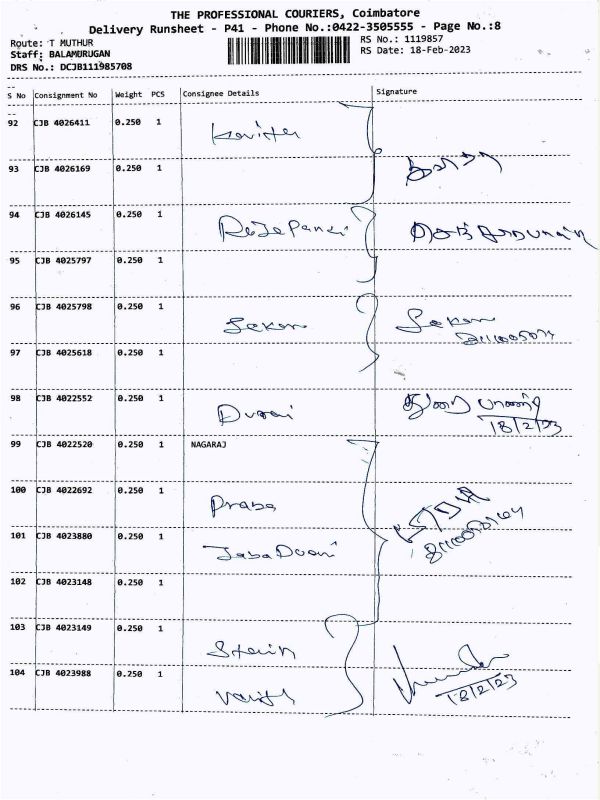 THE PROFESSIONAL COURIERS, Coimbatore
Delivery Runsheet - P41 - Phone No.:0422-3505555 - Page No.:8
Route: T MUTHUR
RS No.: 1119857
Staff: BALAMURUGAN
RS Date: 18-Feb-2023
DRS No.: DCJB111985708
S No Consignment No Weight PCS Consignee Details Signature
92 CJB 4026411 0.250 1
93 CJB 4026169 0.250 1
94 CJB 4026145 0.250 1
95 CJB 4025797 0.250 1
96 CJB 4025798 0.250 1
97 CJB 4025618 0.250 1
98 CJB 4022552 0.250 1 Durai
18/2/23
99 CJB 4022520 0.250 1 NAGARAJ
100 CJB 4022692 0.250 1 Praba
101 CJB 4023880 0.250 1
102 CJB 4023148 0.250 1
103 CJB 4023149 0.250 1
104 CJB 4023988 0.250 1
18/2/23